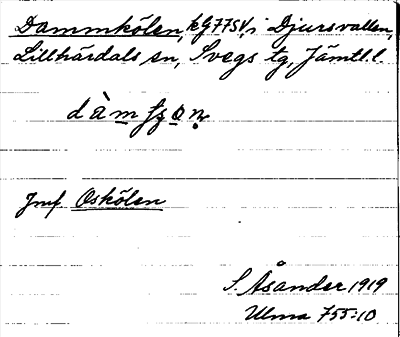 Dammkölen, kG77SV, i Djursvallen,
Lillhärdals sn, Svegs tg, Jämtl. l.
Jmf Oskölen
S. Åsander 1919
Ulma 755:10